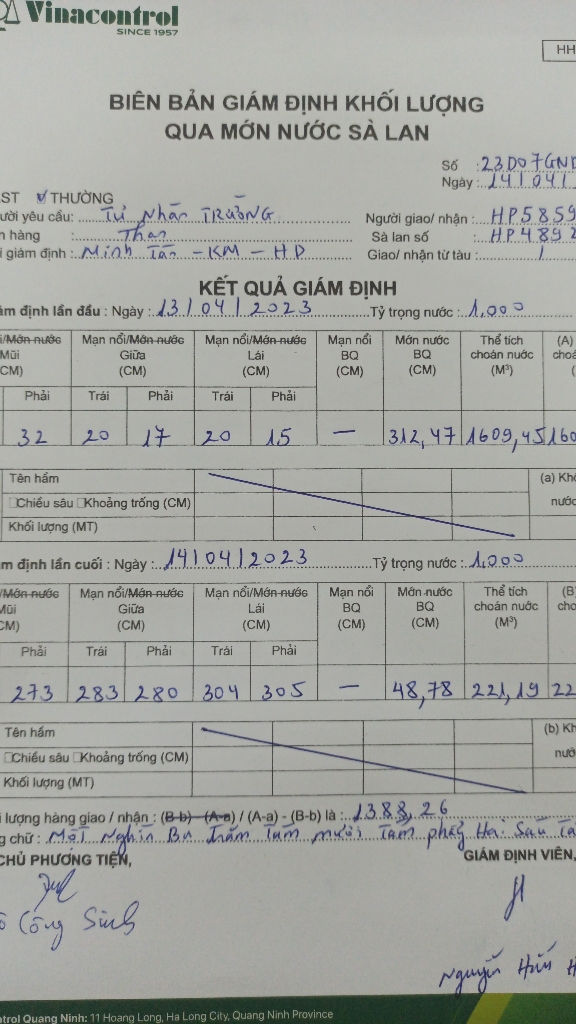 Vinacontrol
SINCE 1957
HH
BIÊN BẢN GIÁM ĐỊNH KHỐI LƯỢNG
QUA MỚN NƯỚC SÀ LAN
Số : 23D07GND
Ngày : 14/04/
ST THƯỜNG
ười yêu cầu: Tư Nhân TRƯỜNG Người giao/ nhận : HP5859
n hàng : Than Sà lan số : HP489
i giám định : Minh Tân - KM - HD Giao/ nhận từ tàu : /
KẾT QUẢ GIÁM ĐỊNH
ám định lần đầu : Ngày : 13/04/2023 Tỷ trọng nước : 1,000
i/Mớn nước Mạn nổi/Mớn nước Mạn nổi/Mớn nước Mạn nổi Mớn nước Thể tích (A)
Mũi Giữa Lái BQ BQ choán nước choá
(CM) (CM) (CM) (CM) (CM) (M³)
Phải Trái Phải Trái Phải
32 20 17 20 15 — 312,47 1609,45 160
Tên hầm (a) Khố
Chiều sâu Khoảng trống (CM) nước
Khối lượng (MT)
ám định lần cuối : Ngày : 14/04/2023 Tỷ trọng nước : 1,000
/Mớn nước Mạn nổi/Mớn nước Mạn nổi/Mớn nước Mạn nổi Mớn nước Thể tích (B)
Mũi Giữa Lái BQ BQ choán nước cho
CM) (CM) (CM) (CM) (CM) (M³)
Phải Trái Phải Trái Phải
273 283 280 304 305 — 48,78 221,19 22
Tên hầm (b) Kh
Chiều sâu Khoảng trống (CM) nướ
Khối lượng (MT)
i lượng hàng giao / nhận : (B-b) - (A-a) / (A-a) - (B-b) là : 1388,26
g chữ : Một Nghìn Ba Trăm Tám mươi Tám phẩy Hai Sáu Tấ
CHỦ PHƯƠNG TIỆN, GIÁM ĐỊNH VIÊN,
Công Sinh
Nguyễn Hữu H
trol Quang Ninh: 11 Hoang Long, Ha Long City, Quang Ninh Province